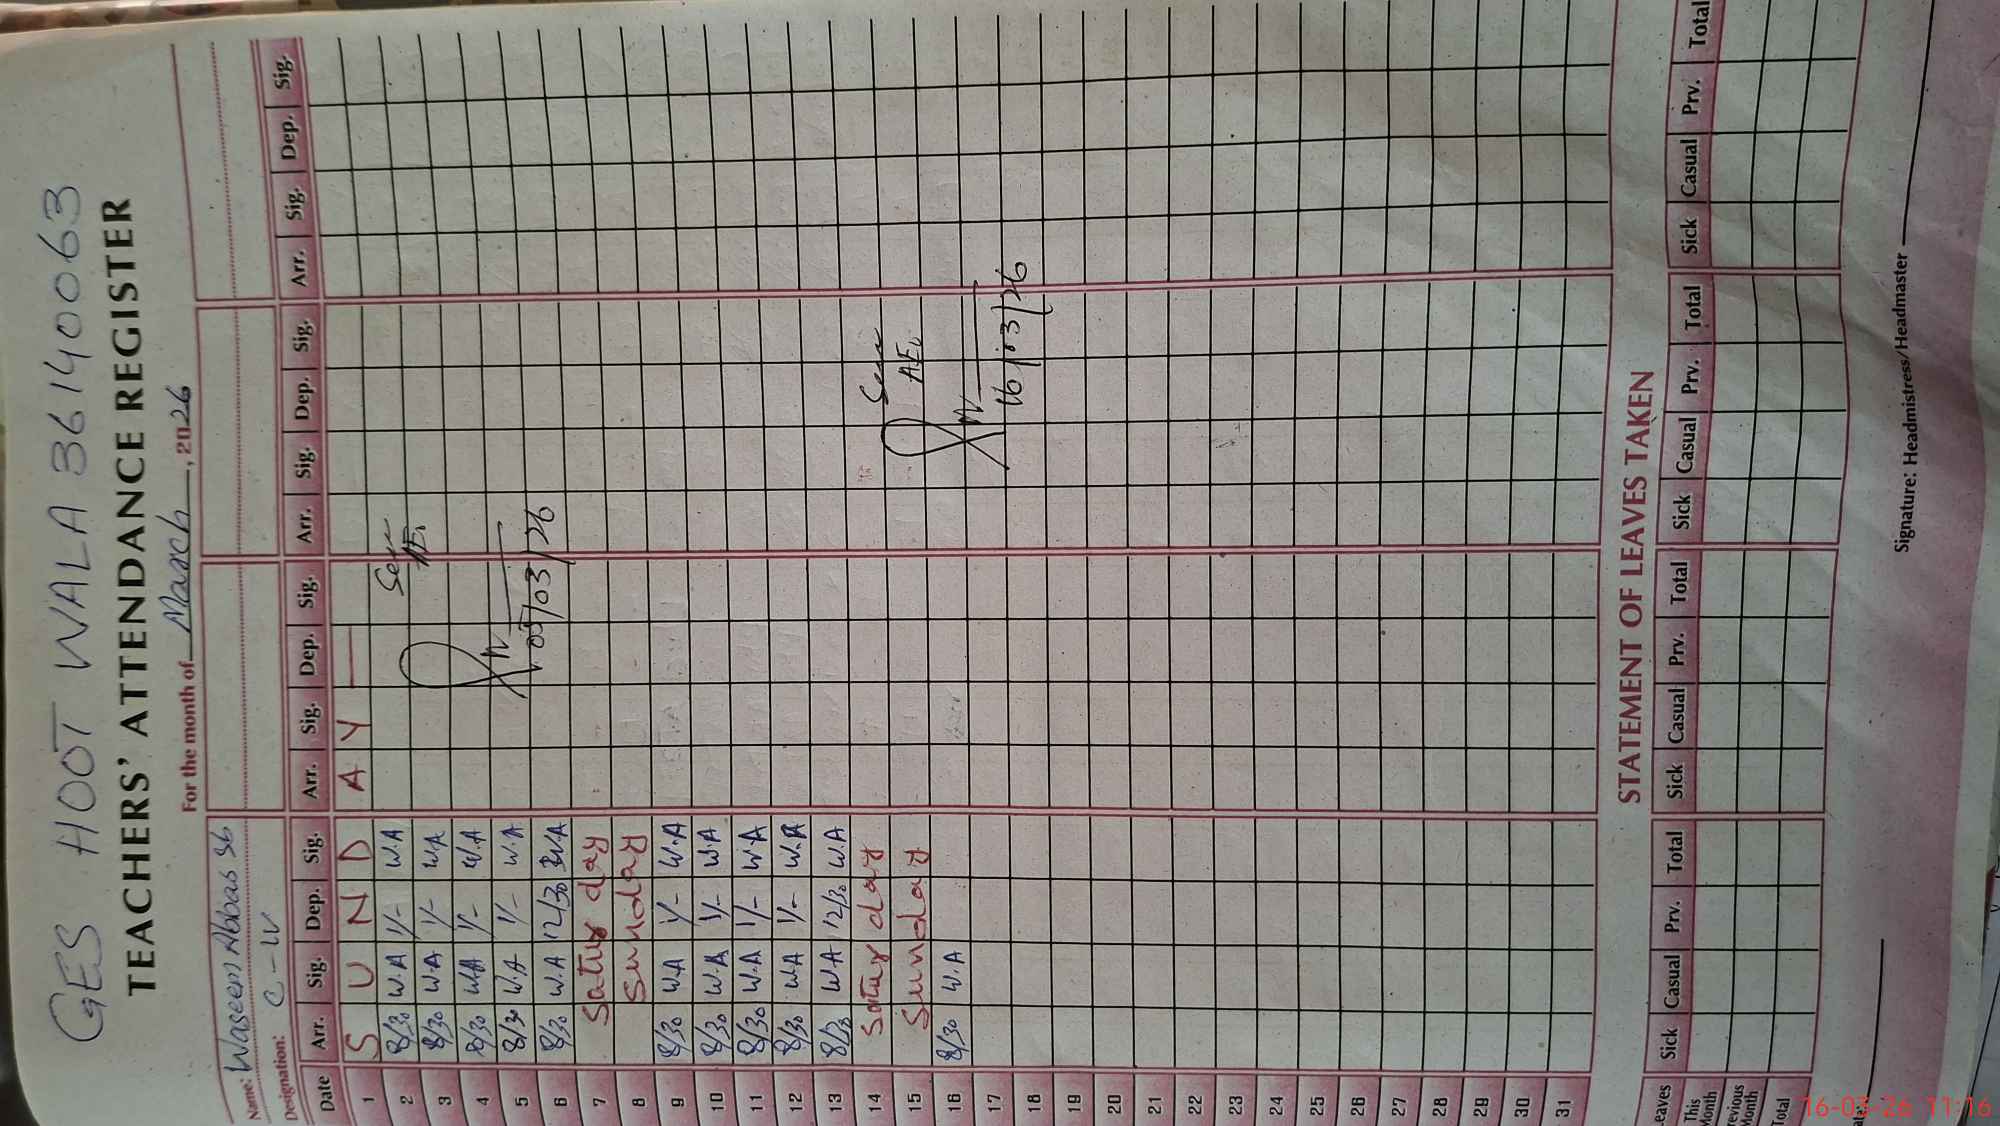 GES HOOT WALA 36140063
TEACHERS' ATTENDANCE REGISTER
For the month of March, 2026
Name: Waseem Abbas Sb
Designation: C - IV
Date Arr. Sig. Dep. Sig. Arr. Sig. Dep. Sig. Arr. Sig. Dep. Sig. Arr. Sig. Dep. Sig.
1 S U N D A Y
2 8/30 W.A 1/- W.A
3 8/30 W.A 1/- W.A
4 8/30 W.A 1/- W.A
5 8/30 W.A 1/- W.A
6 8/30 W.A 12/30 W.A
7 Satur day
8 Sunday
9 8/30 W.A 1/- W.A
10 8/30 W.A 1/- W.A
11 8/30 W.A 1/- W.A
12 8/30 W.A 1/- W.A
13 8/30 W.A 12/30 W.A
14 Satur day
15 Sunday
16 8/30 W.A
17
18
19
20
21
22
23
24
25
26
27
28
29
30
31
Seen
05/03/26
Seen
16/03/26
STATEMENT OF LEAVES TAKEN
Leaves Sick Casual Prv. Total Sick Casual Prv. Total Sick Casual Prv. Total Sick Casual Prv. Total
This Month
Previous Month
Total
Signature: Headmistress/Headmaster
16-03-26 11:16